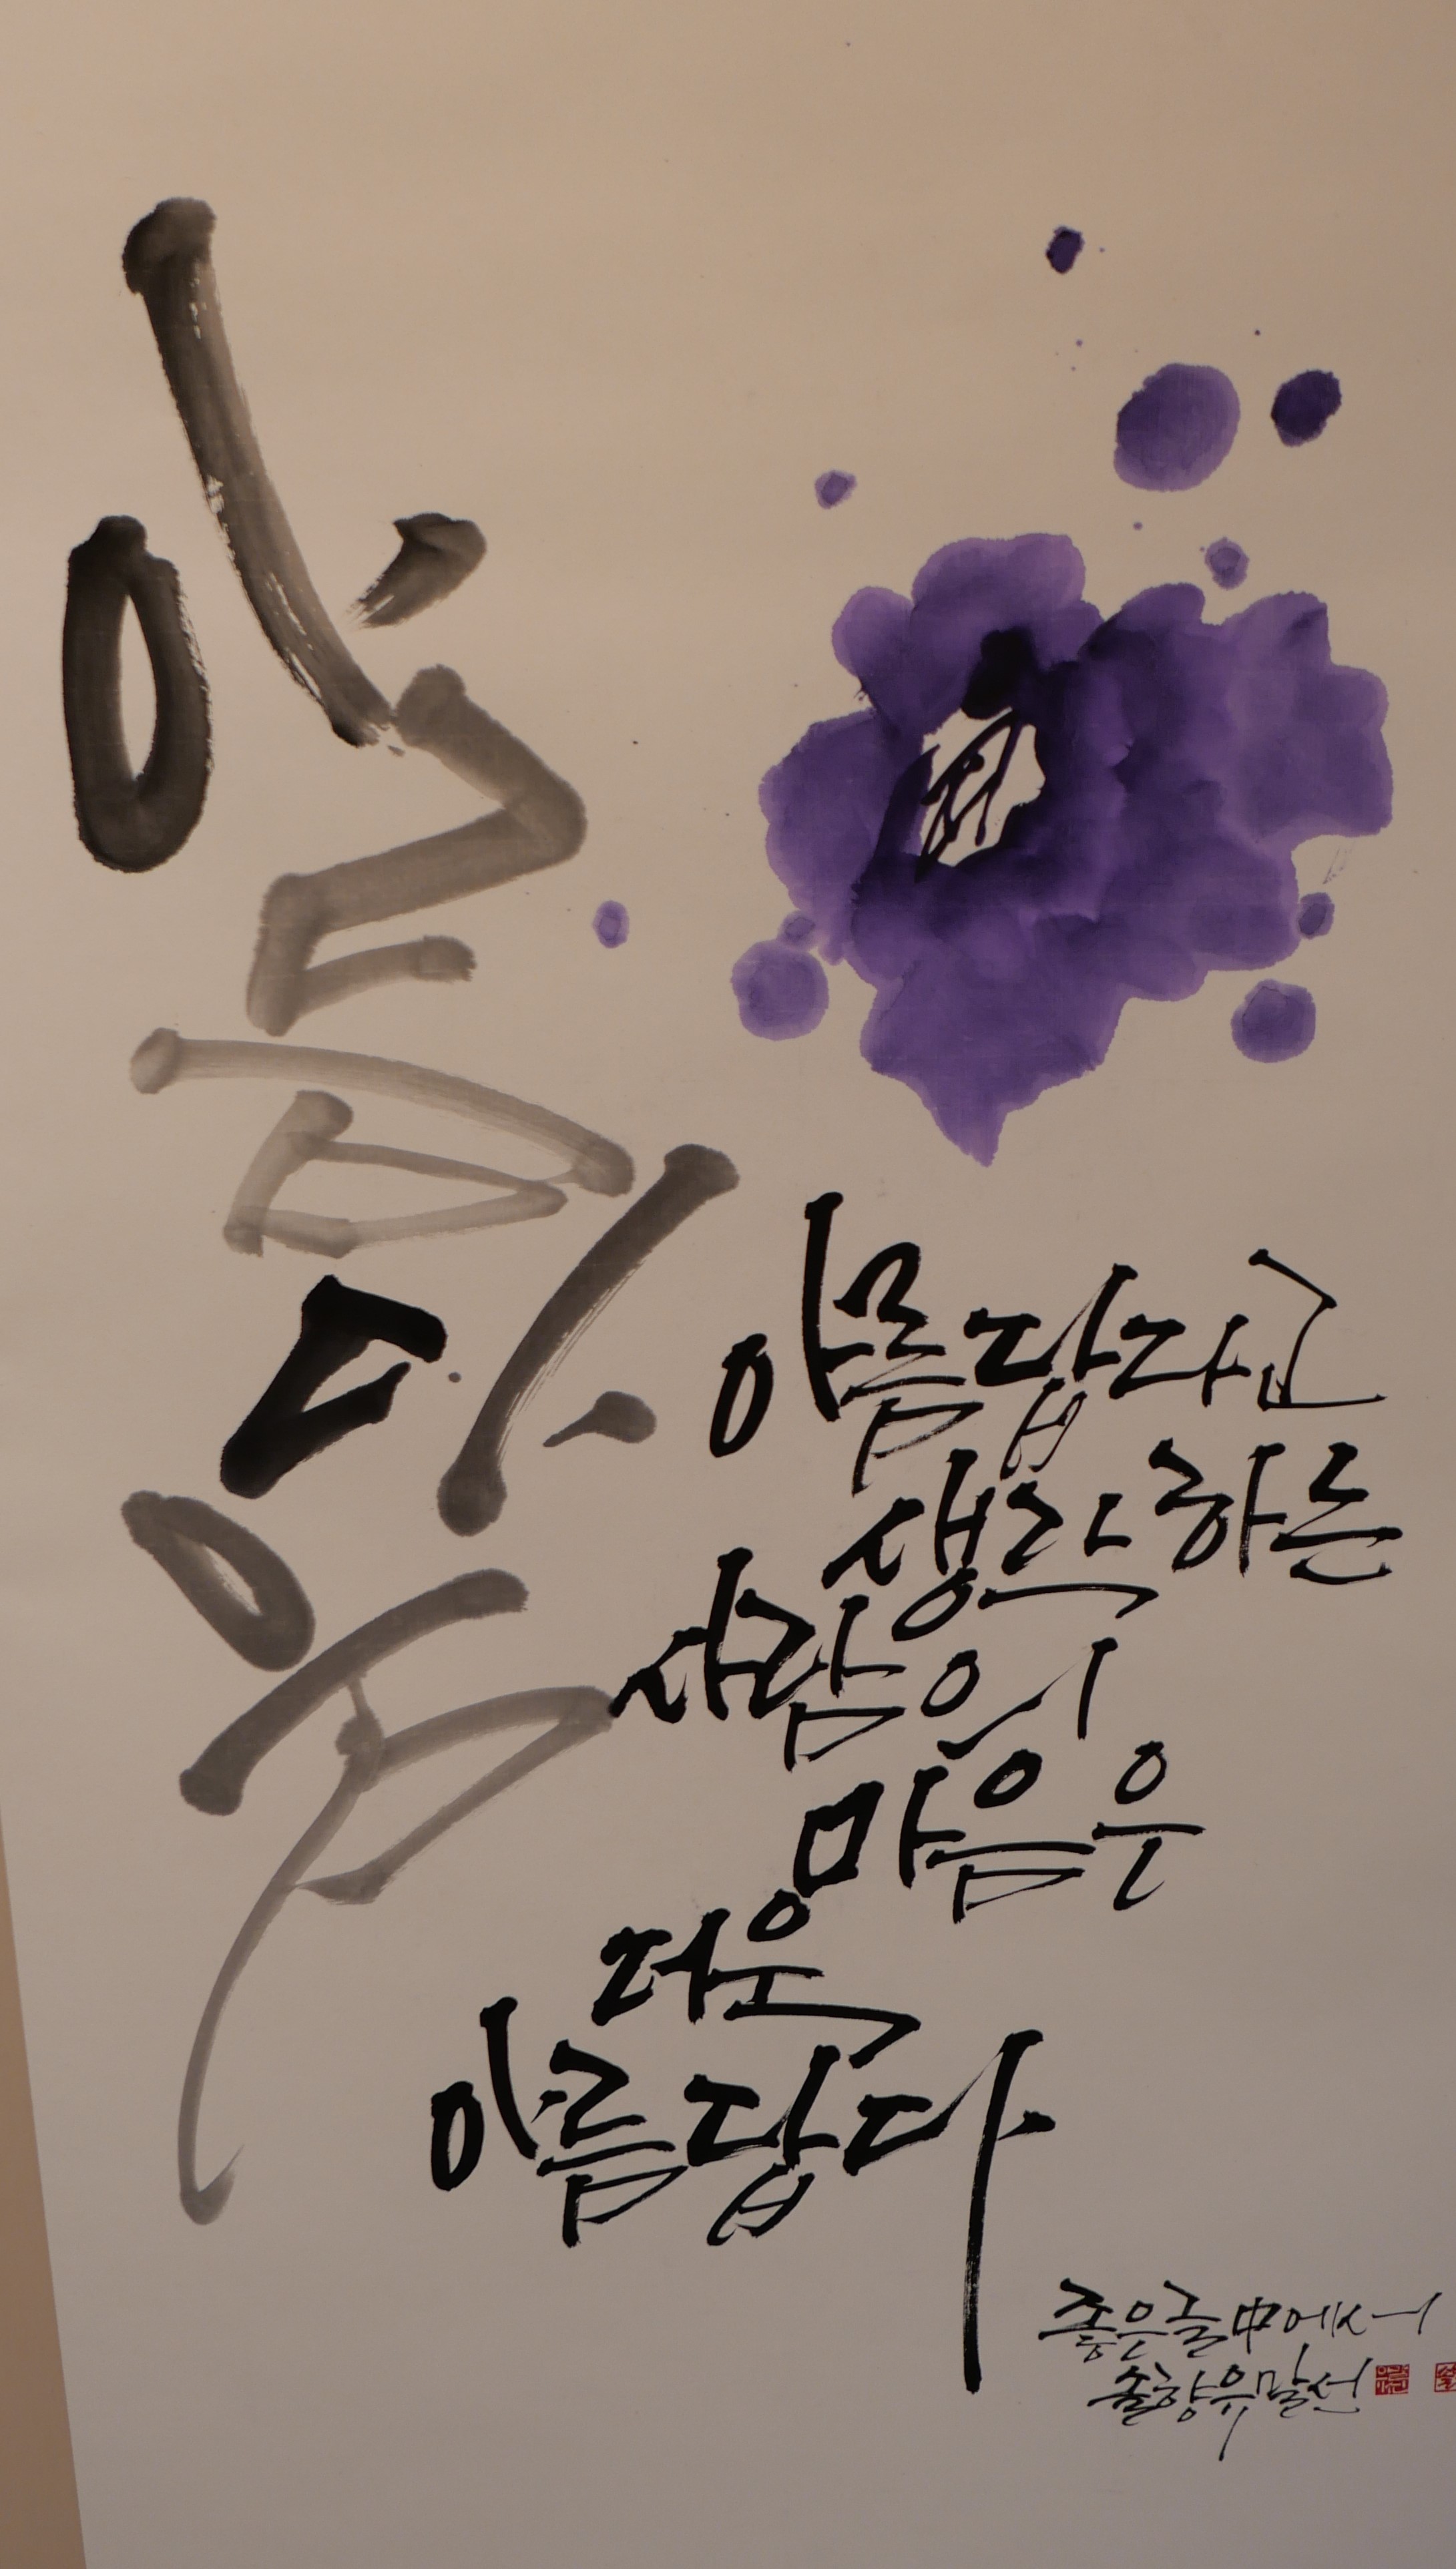 아름다운
아름답다고
생각하는
사람의
마음은
더욱
아름답다
좋은글中에서
솔향 유말선